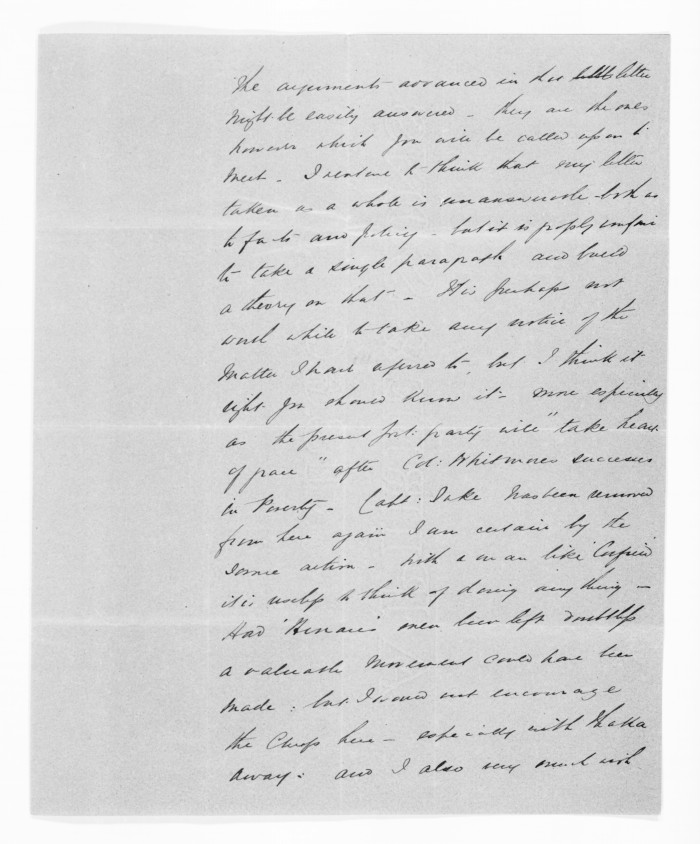 The arguments advanced in the letter
might be easily answered - they are the ones
however which you will be called upon to
meet - I venture to think that my letter
taken as a whole is unanswerable both as
to facts and policy - but it is
to take a single paragraph and build
a theory on that - It is perhaps not
worth while to take any notice of the
matter I have referred to, but I think it
right you should know it - more especially
as the present Govt: party will "take heart
of grace" after Col: Whitmores successes
in Poverty - Capt: has been removed
from here again I am certain by the
same action - with a man like
it is useless to think of doing anything -
Had Henare's men been left doubtless
a valuable movement could have been
made: but I would not encourage
the Chiefs here - especially with
away: and I also very much wish